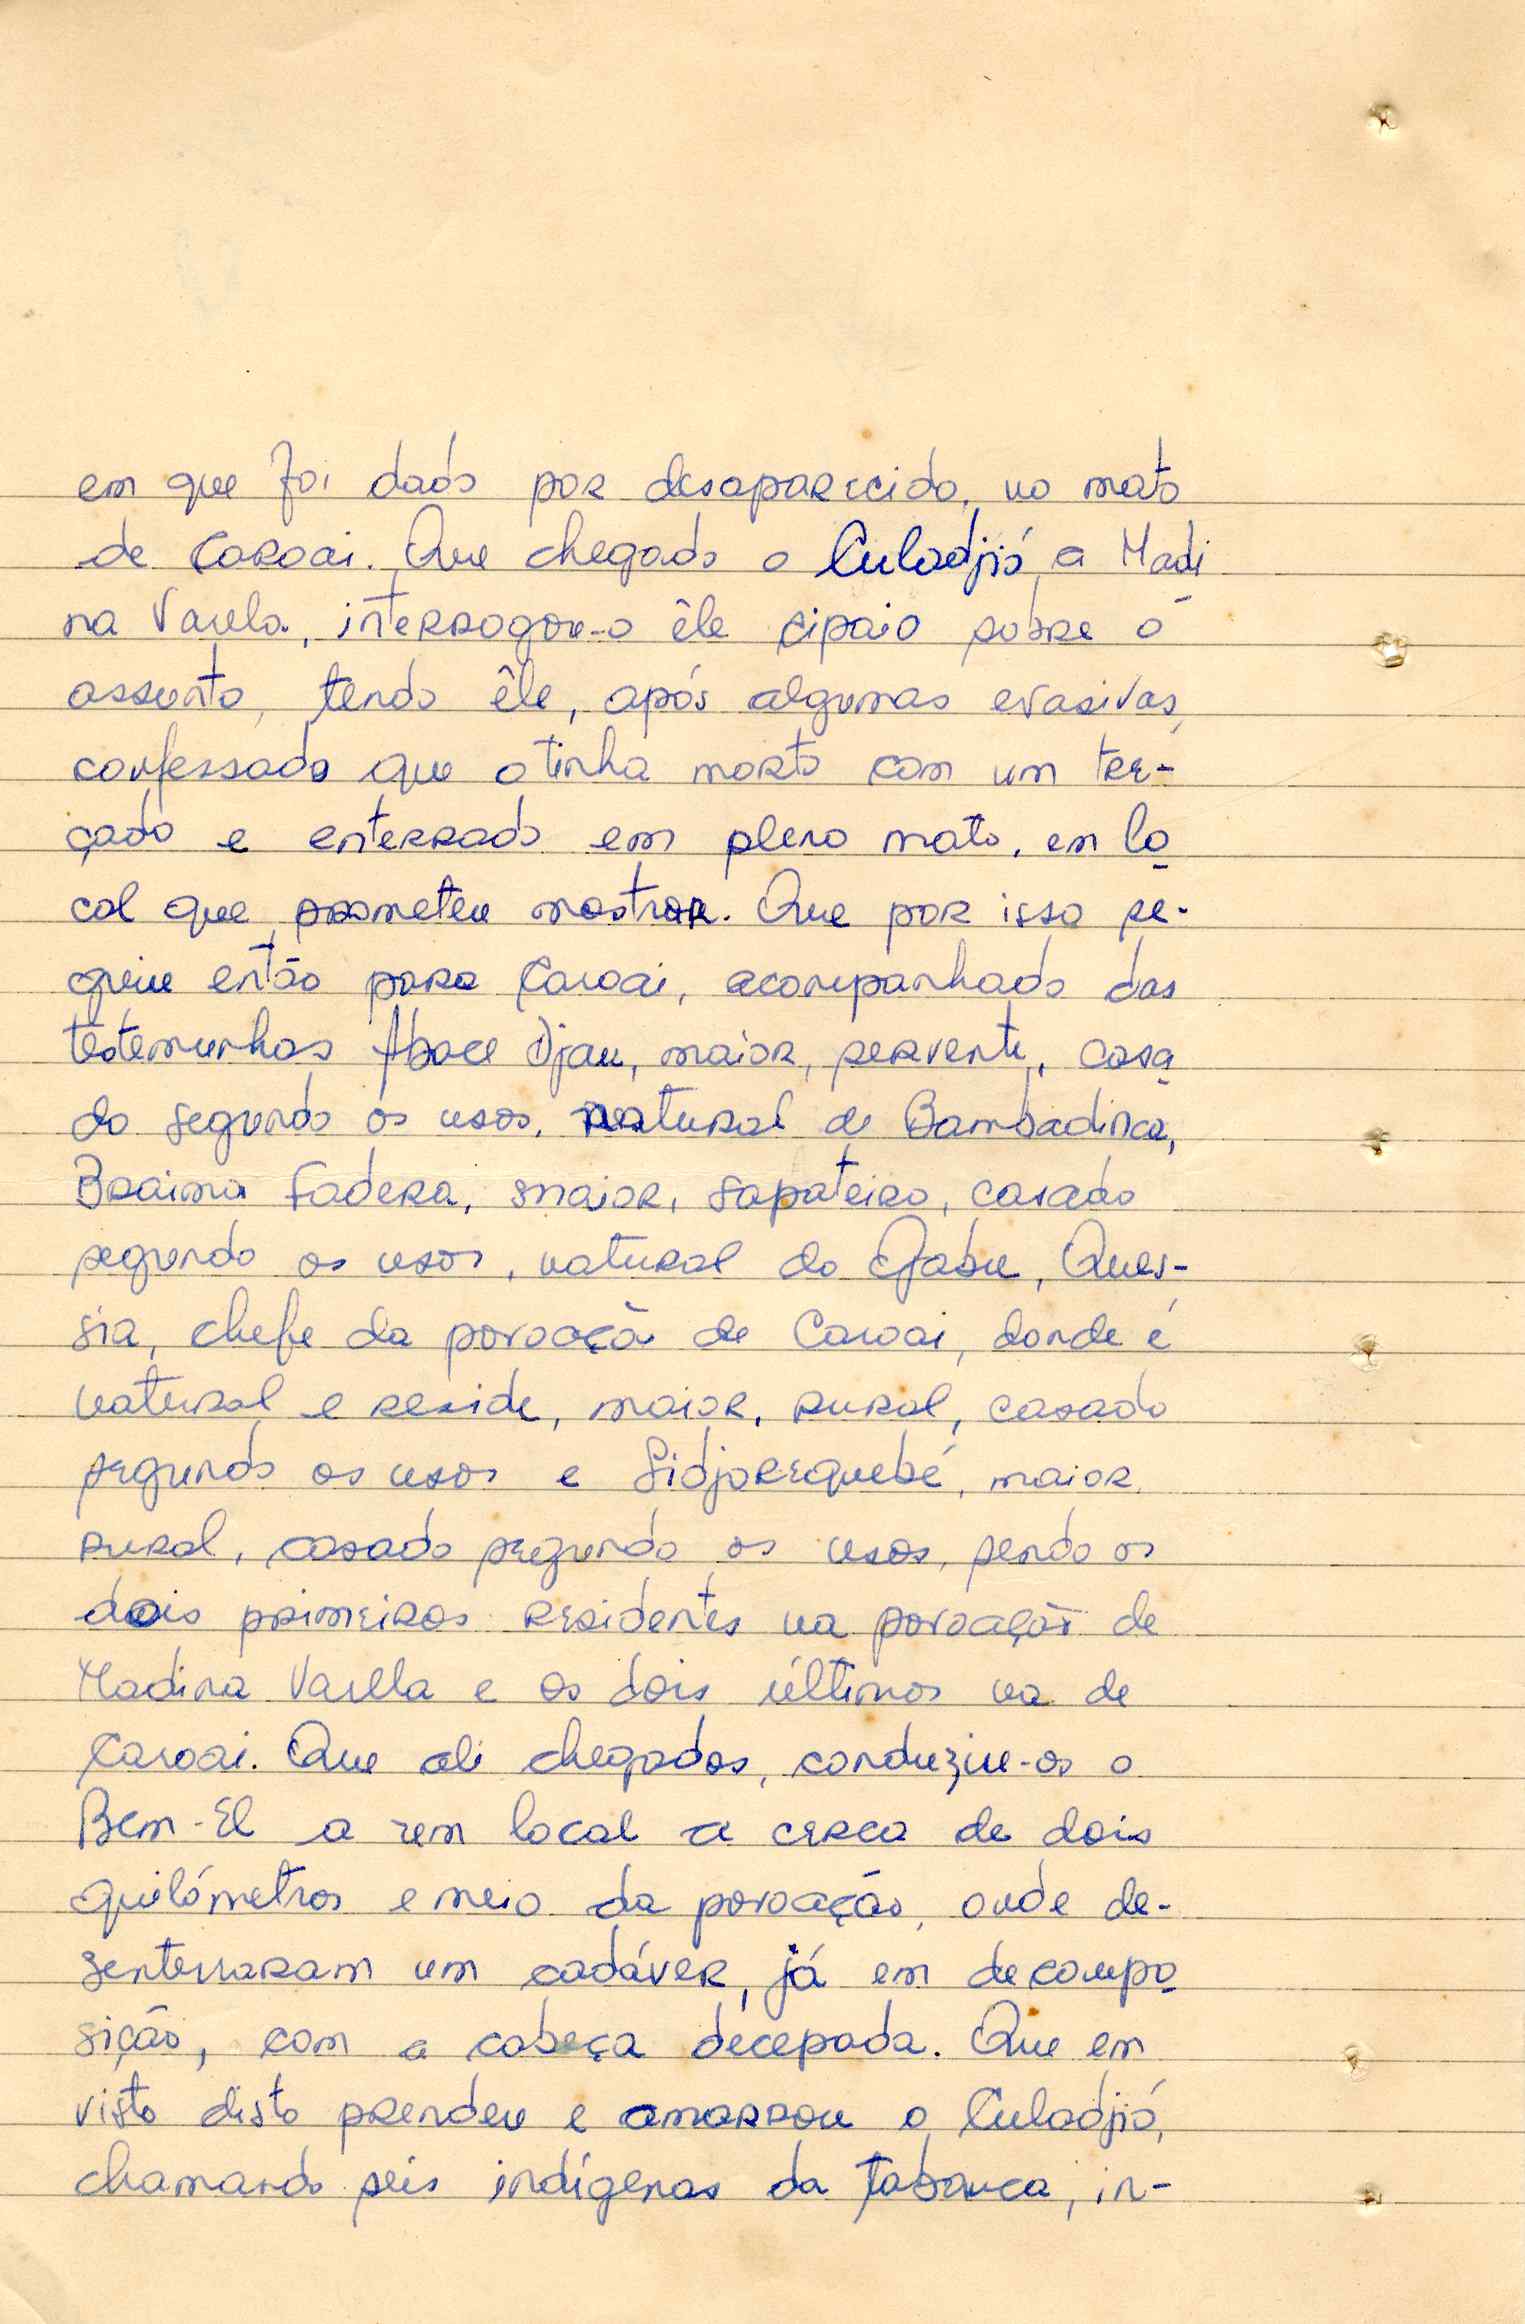 em que foi dado por desaparecido, no mato
de Caroai. Que chegado o Culadjió a Madi
na Varela, interrogou-o êle cipaio sobre o
assunto, tendo êle, após algumas evasivas,
confessado que o tinha morto com um ter-
çado e enterrado em pleno mato, em lo
cal que prometeu mostrar. Que por isso se-
guiu então para Caroai, acompanhado das
testemunhas Abace Djau, maior, servente, casa
do segundo os usos, natural de Bambadinca,
Braima Fadera, maior, sapateiro, casado
segundo os usos, natural do Gabu, Ques-
sia, chefe da povoação de Caroai, donde é
natural e reside, maior, rural, casado
segundo os usos e Sidjorequebé, maior,
rural, casado segundo os usos, sendo os
dois primeiros residentes na povoação de
Madina Varella e os dois últimos na de
Caroai. Que ali chegados, conduziu-os o
Bem-El a um local a cerca de dois
quilómetros e meio da povoação, onde de-
senterraram um cadáver, já em decompo
sição, com a cabeça decepada. Que em
visto disto prendeu e amarrou o Culadjió,
chamando seis indígenas da tabanca, in-